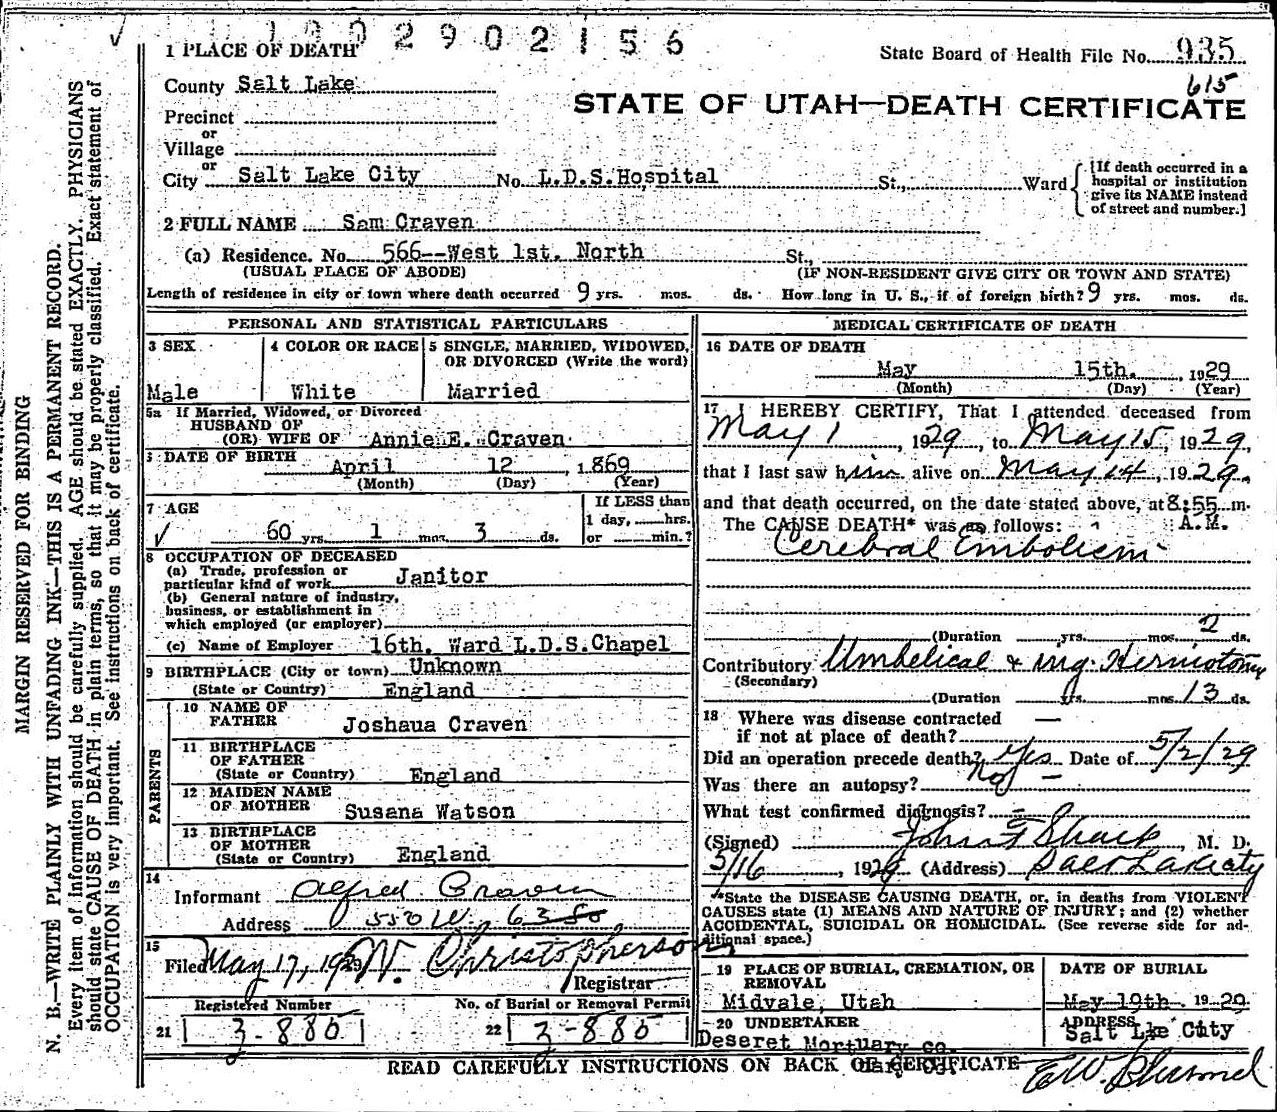 2902156
1 PLACE OF DEATH
State Board of Health File No. 935
615
County Salt Lake
STATE OF UTAH—DEATH CERTIFICATE
Precinct
or
Village
or
City Salt Lake City No. L.D.S.Hospital St., Ward
[If death occurred in a hospital or institution give its NAME instead of street and number.]
2 FULL NAME Sam Craven
(a) Residence. No. 566--West 1st. North St.,
(USUAL PLACE OF ABODE) (IF NON-RESIDENT GIVE CITY OR TOWN AND STATE)
Length of residence in city or town where death occurred 9 yrs. mos. ds. How long in U. S., if of foreign birth? 9 yrs. mos. ds.
PERSONAL AND STATISTICAL PARTICULARS
3 SEX
Male
4 COLOR OR RACE
White
5 SINGLE, MARRIED, WIDOWED, OR DIVORCED (Write the word)
Married
5a If Married, Widowed, or Divorced
HUSBAND OF
(OR) WIFE OF Annie E. Craven
DATE OF BIRTH
April 12, 1869
(Month) (Day) (Year)
7 AGE
60 yrs. 1 mos. 3 ds.
If LESS than
1 day, hrs.
or min.?
8 OCCUPATION OF DECEASED
(a) Trade, profession or
particular kind of work Janitor
(b) General nature of industry,
business, or establishment in
which employed (or employer)
(c) Name of Employer 16th. Ward L.D.S.Chapel
9 BIRTHPLACE (City or town) Unknown
(State or Country) England
PARENTS
10 NAME OF
FATHER Joshaua Craven
11 BIRTHPLACE
OF FATHER
(State or Country) England
12 MAIDEN NAME
OF MOTHER Susana Watson
13 BIRTHPLACE
OF MOTHER
(State or Country) England
14
Informant Alfred Craven
Address 550 W. 6350
15
Filed May 17, 1929 W. Christopherson
Registrar
Registered Number
21 3-885
No. of Burial or Removal Permit
22 3-885
MEDICAL CERTIFICATE OF DEATH
16 DATE OF DEATH
May 15th. , 1929
(Month) (Day) (Year)
17 I HEREBY CERTIFY, That I attended deceased from
May 1, 1929, to May 15, 1929,
that I last saw him alive on May 14, 1929,
and that death occurred, on the date stated above, at 8:55 m.
A.M.
The CAUSE DEATH* was as follows:
Cerebral Embolism
(Duration yrs. mos. 2 ds.
Contributory Umbelical & ing. Herniotomy
(Secondary)
(Duration yrs. mos. 13 ds.
18 Where was disease contracted
if not at place of death? —
Did an operation precede death? Yes Date of 5/2/29
Was there an autopsy? No —
What test confirmed diagnosis? =
(Signed) John F Sharp, M. D.
5/16, 1929 (Address) Salt Lake City
*State the DISEASE CAUSING DEATH, or, in deaths from VIOLENT
CAUSES state (1) MEANS AND NATURE OF INJURY; and (2) whether
ACCIDENTAL, SUICIDAL OR HOMICIDAL. (See reverse side for ad-
ditional space.)
19 PLACE OF BURIAL, CREMATION, OR
REMOVAL
Midvale, Utah
DATE OF BURIAL
May 19th. 1929
20 UNDERTAKER
Deseret Mortuary co.
ADDRESS
Salt Lke City
READ CAREFULLY INSTRUCTIONS ON BACK OF CERTIFICATE
MARGIN RESERVED FOR BINDING
N. B.—WRITE PLAINLY WITH UNFADING INK—THIS IS A PERMANENT RECORD.
Every item of information should be carefully supplied. AGE should be stated EXACTLY. PHYSICIANS
should state CAUSE OF DEATH in plain terms, so that it may be properly classified. Exact statement of
OCCUPATION is very important. See instructions on back of certificate.